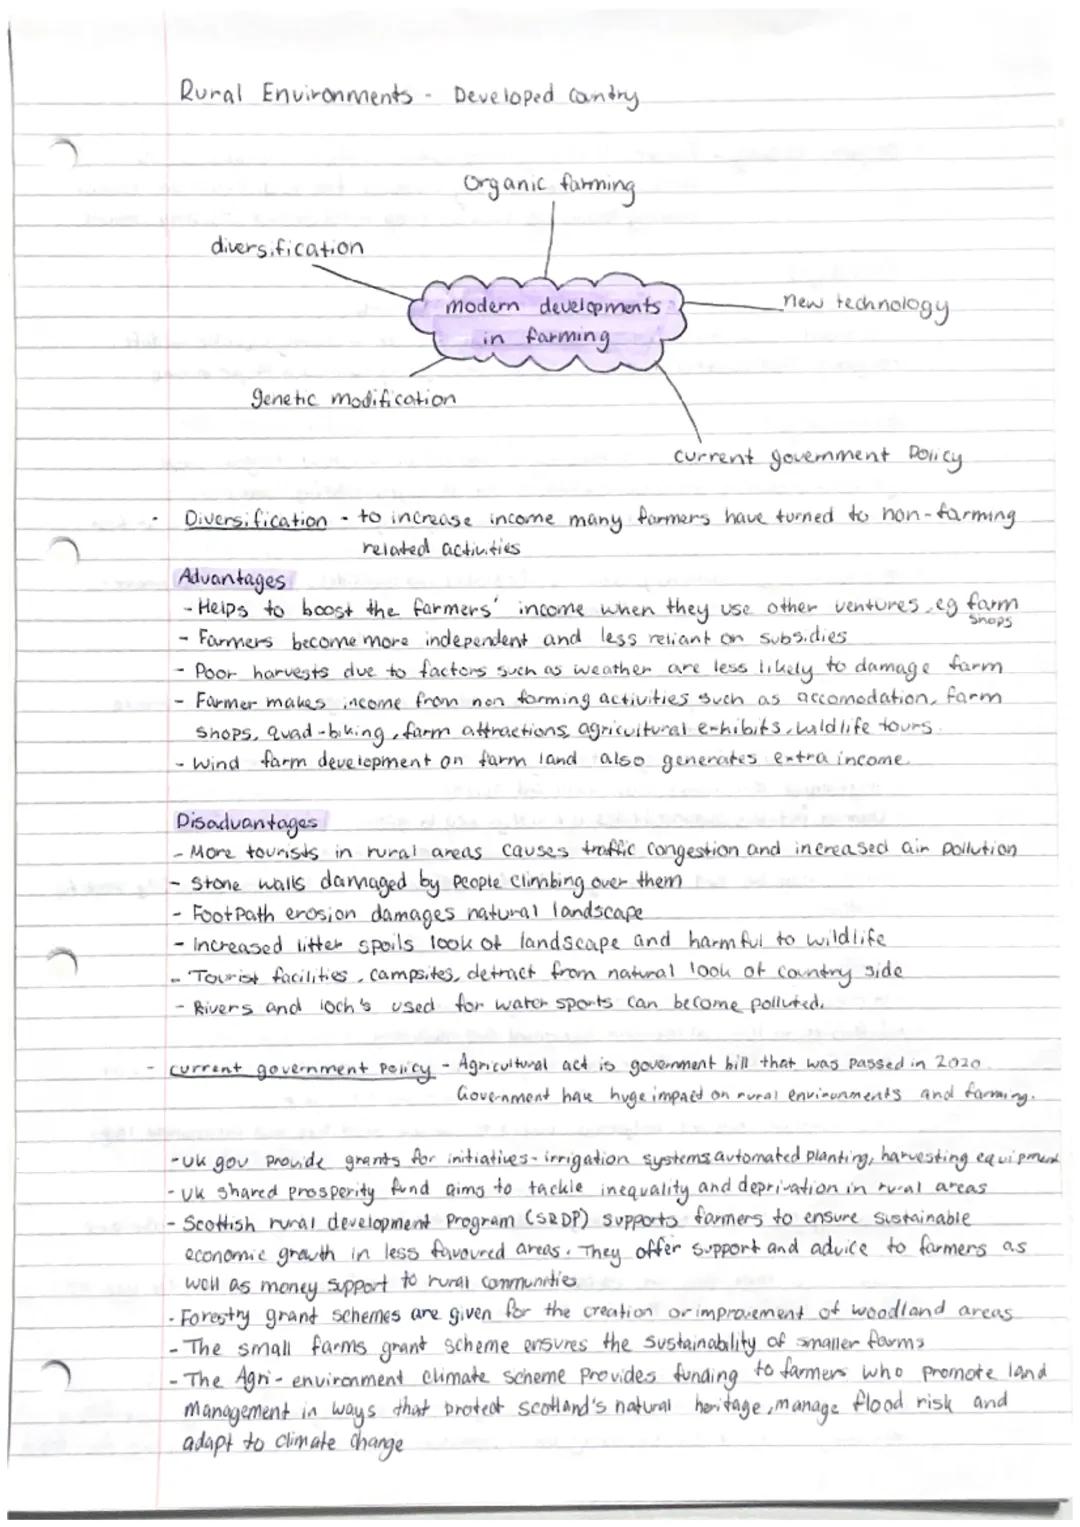 Rural Environments - Developed Country
Organic farming
diversification
modern developments
in farming
new technology
genetic modification
current government policy
Diversification - to increase income many farmers have turned to non-farming
related activities
Advantages
- Helps to boost the farmers' income when they use other ventures, eg farm
shops
- Farmers become more independent and less reliant on subsidies
- Poor harvests due to factors such as weather are less likely to damage farm
- Farmer makes income from non farming activities such as accomodation, farm
shops, quad-biking, farm attractions, agricultural exhibits, wildlife tours.
- Wind farm development on farm land also generates extra income.
Disadvantages
- More tourists in rural areas causes traffic congestion and increased air pollution
- Stone walls damaged by people climbing over them
- Footpath erosion damages natural landscape
- Increased litter spoils look of landscape and harmful to wildlife
- Tourist facilities, campsites, detract from natural look of country side
- Rivers and loch's used for water sports can become polluted.
- current government policy - Agricultural act is government bill that was passed in 2020.
Government have huge impact on rural environments and farming.
- UK gov provide grants for initiatives - irrigation systems, automated planting, harvesting equipment
- UK shared prosperity fund aims to tackle inequality and deprivation in rural areas
- Scottish rural development Program (SRDP) supports farmers to ensure sustainable
economic growth in less favoured areas. They offer support and advice to farmers as
well as money support to rural communities
- Forestry grant schemes are given for the creation or improvement of woodland areas
- The small farms grant scheme ensures the sustainability of smaller farms
- The Agri-environment climate scheme provides funding to farmers who promote land
management in ways that protect scotland's natural heritage, manage flood risk and
adapt to climate change